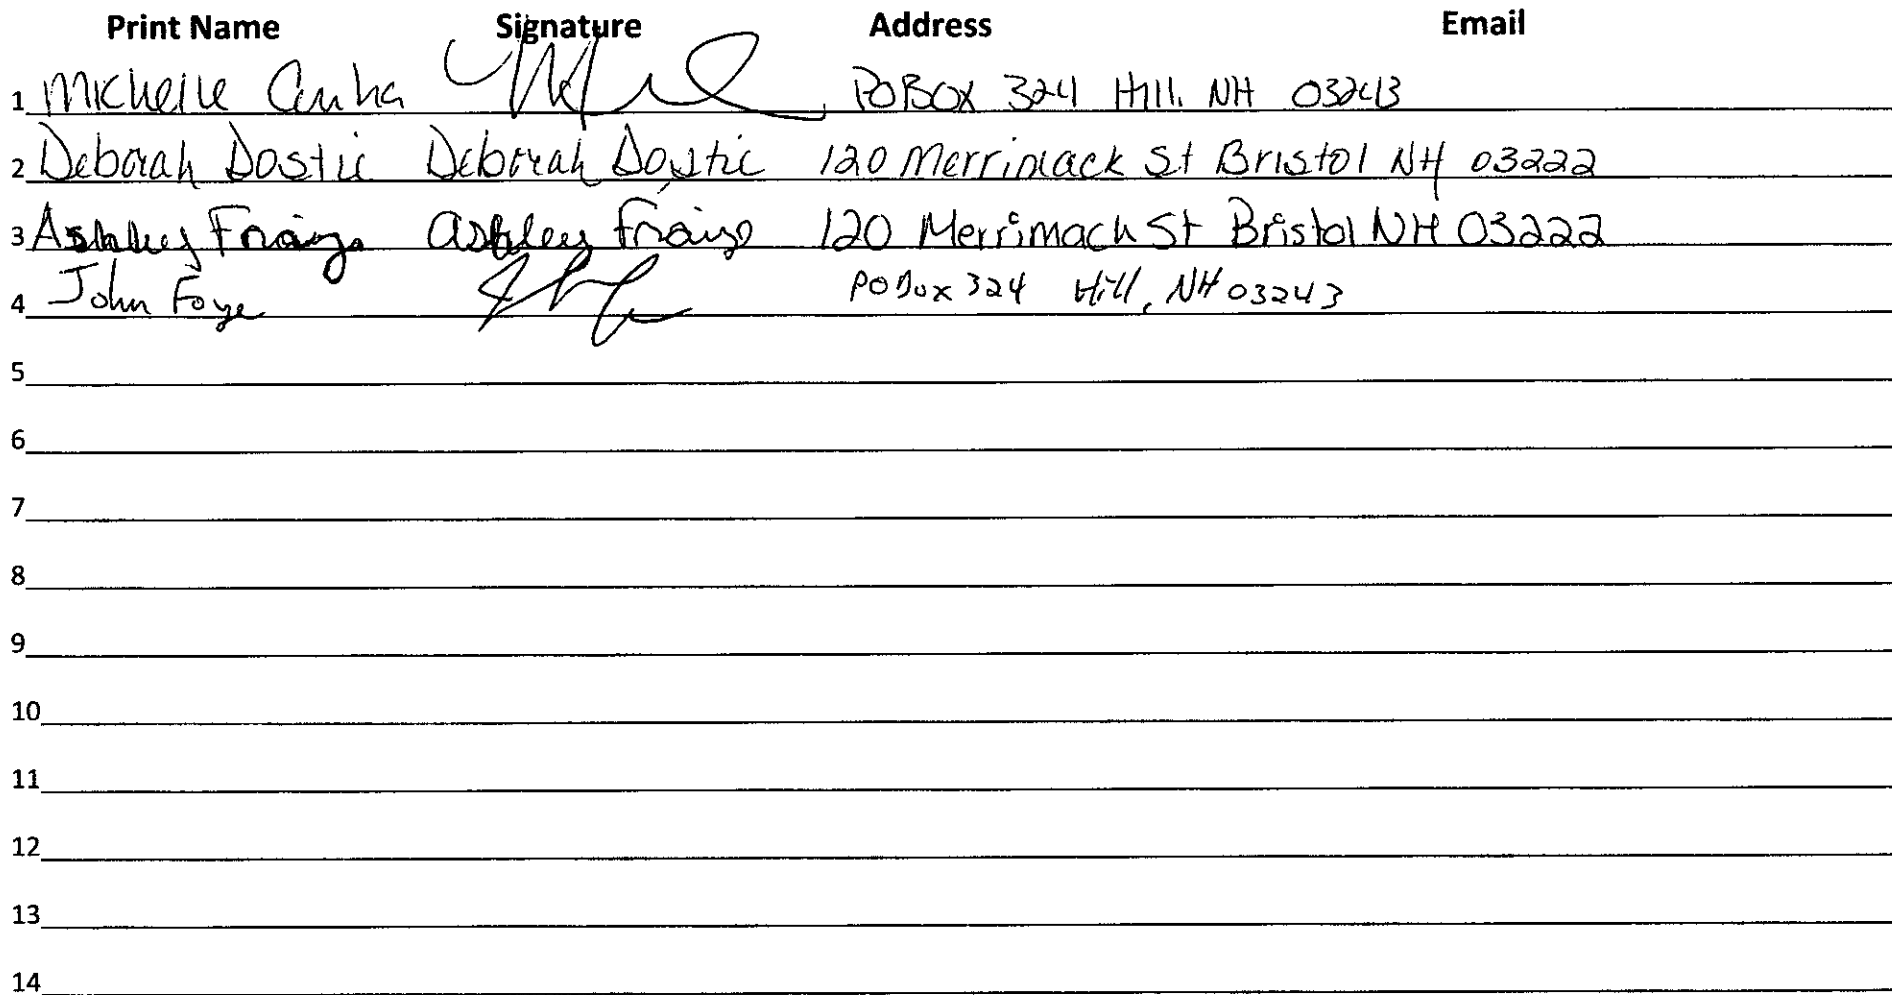 Print Name Signature Address Email
1 Michelle Cunha PO BOX 324 Hill, NH 03243
2 Deborah Dostie Deborah Dostie 120 Merrimack St Bristol NH 03222
3 Ashley Ashley 120 Merrimach St Bristol NH 03222
4 John Foye PO Box 324 Hill, NH 03243
5
6
7
8
9
10
11
12
13
14